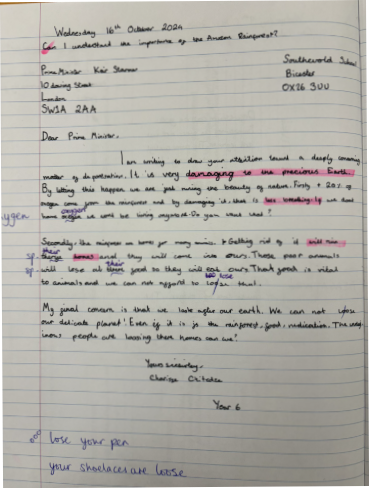 Wednesday 16th October 2024
Can I understand the importance of the Amazon Rainforest?
Prime Minister Keir Starmer
10 downing Street
London
SW1A 2AA
Southwold School
Bicester
OX26 3UU
Dear Prime Minister,
I am writing to draw your attention toward a deeply concerning
matter of deforestation. It is very damaging to the precious Earth.
By letting this happen we are just ruining the beauty of nature. Firstly + 20% of
oxygen come from the rainforest and by damaging it, that is
home we won't be living anymore. Do you want that?
Secondly, the rainforest is home for many animals. Getting rid of it will
homes and they will come into ours. Those poor animals
will lose all their good so they will eat ours. That is vital
to animals and we can not afford to lose that.
My final concern is that we look after our earth. We can not lose
our delicate planet! Even if it is the rainforest, food, medication. The
people are loosing their homes can we!
Yours sincerely,
Year 6
lose your pen
your shoelaces are loose